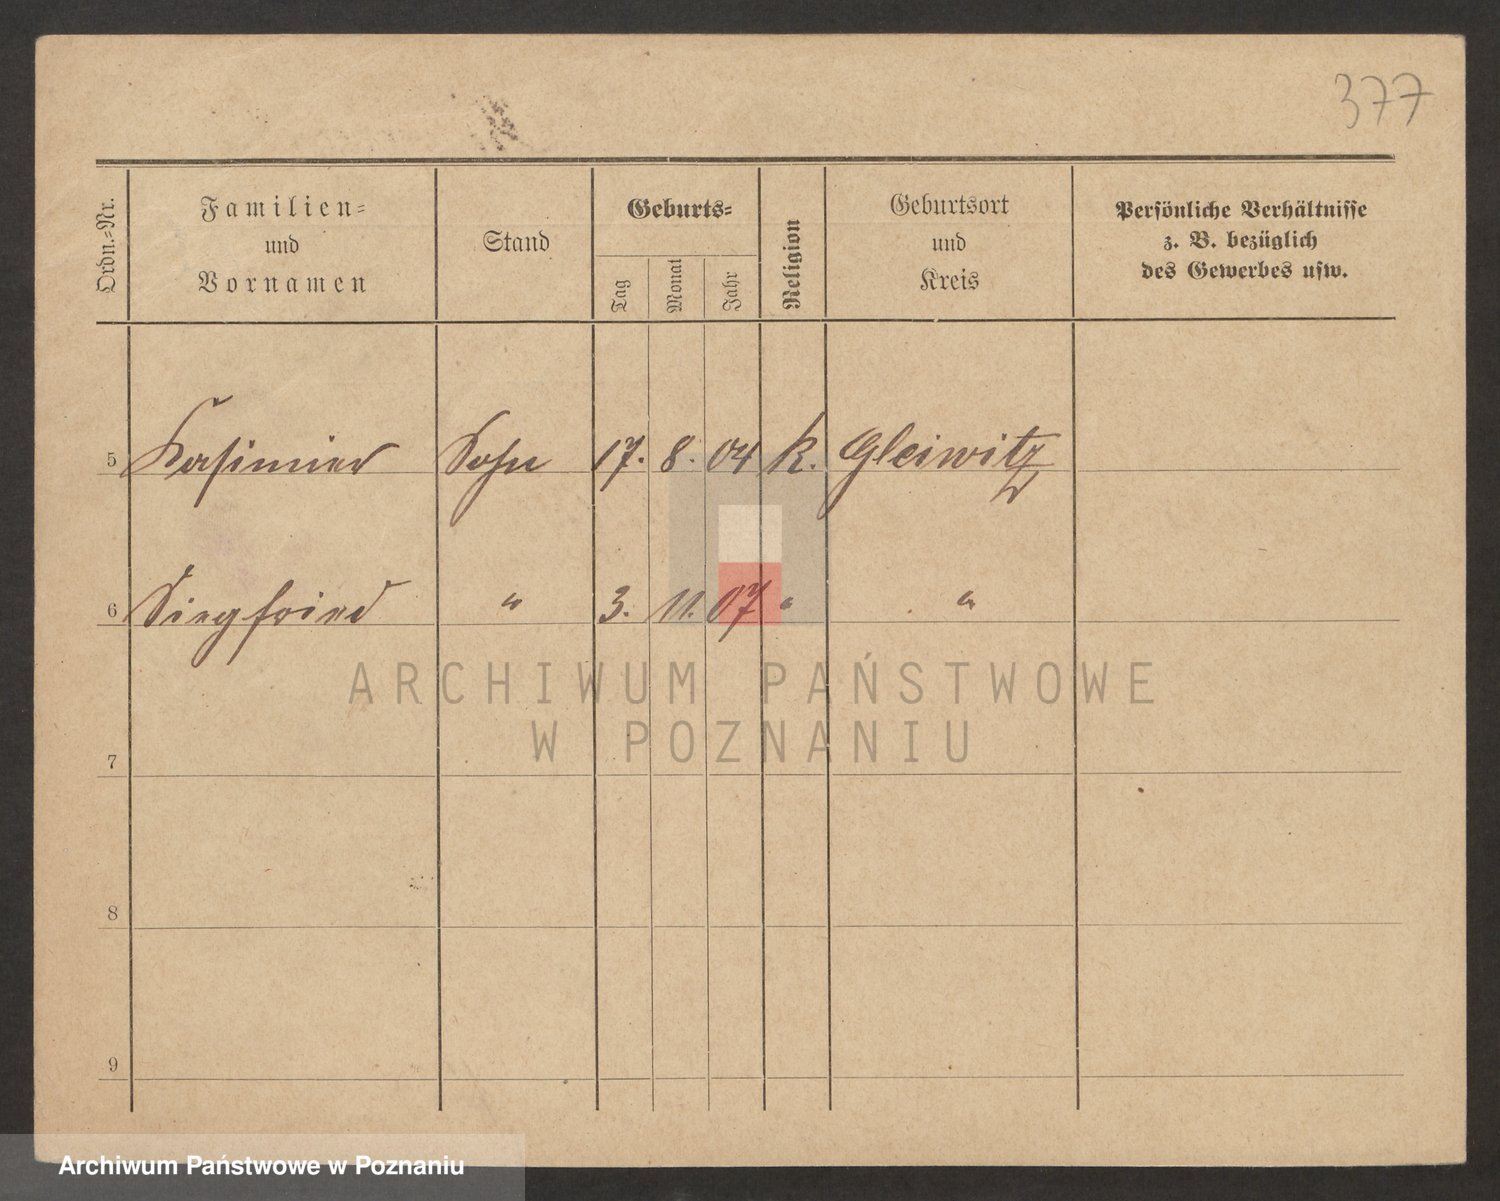 377
Ordn.-Nr.
Familien- und Vornamen
Stand
Geburts-
Tag
Monat
Jahr
Religion
Geburtsort und Kreis
Persönliche Verhältnisse z. B. bezüglich des Gewerbes usw.
5 Kasimier Sohn 17. 8. 04 k. Gleiwitz
6 Siegfried " 3. 11. 07 " "
ARCHIWUM PAŃSTWOWE
W POZNANIU
7
8
9
Archiwum Państwowe w Poznaniu